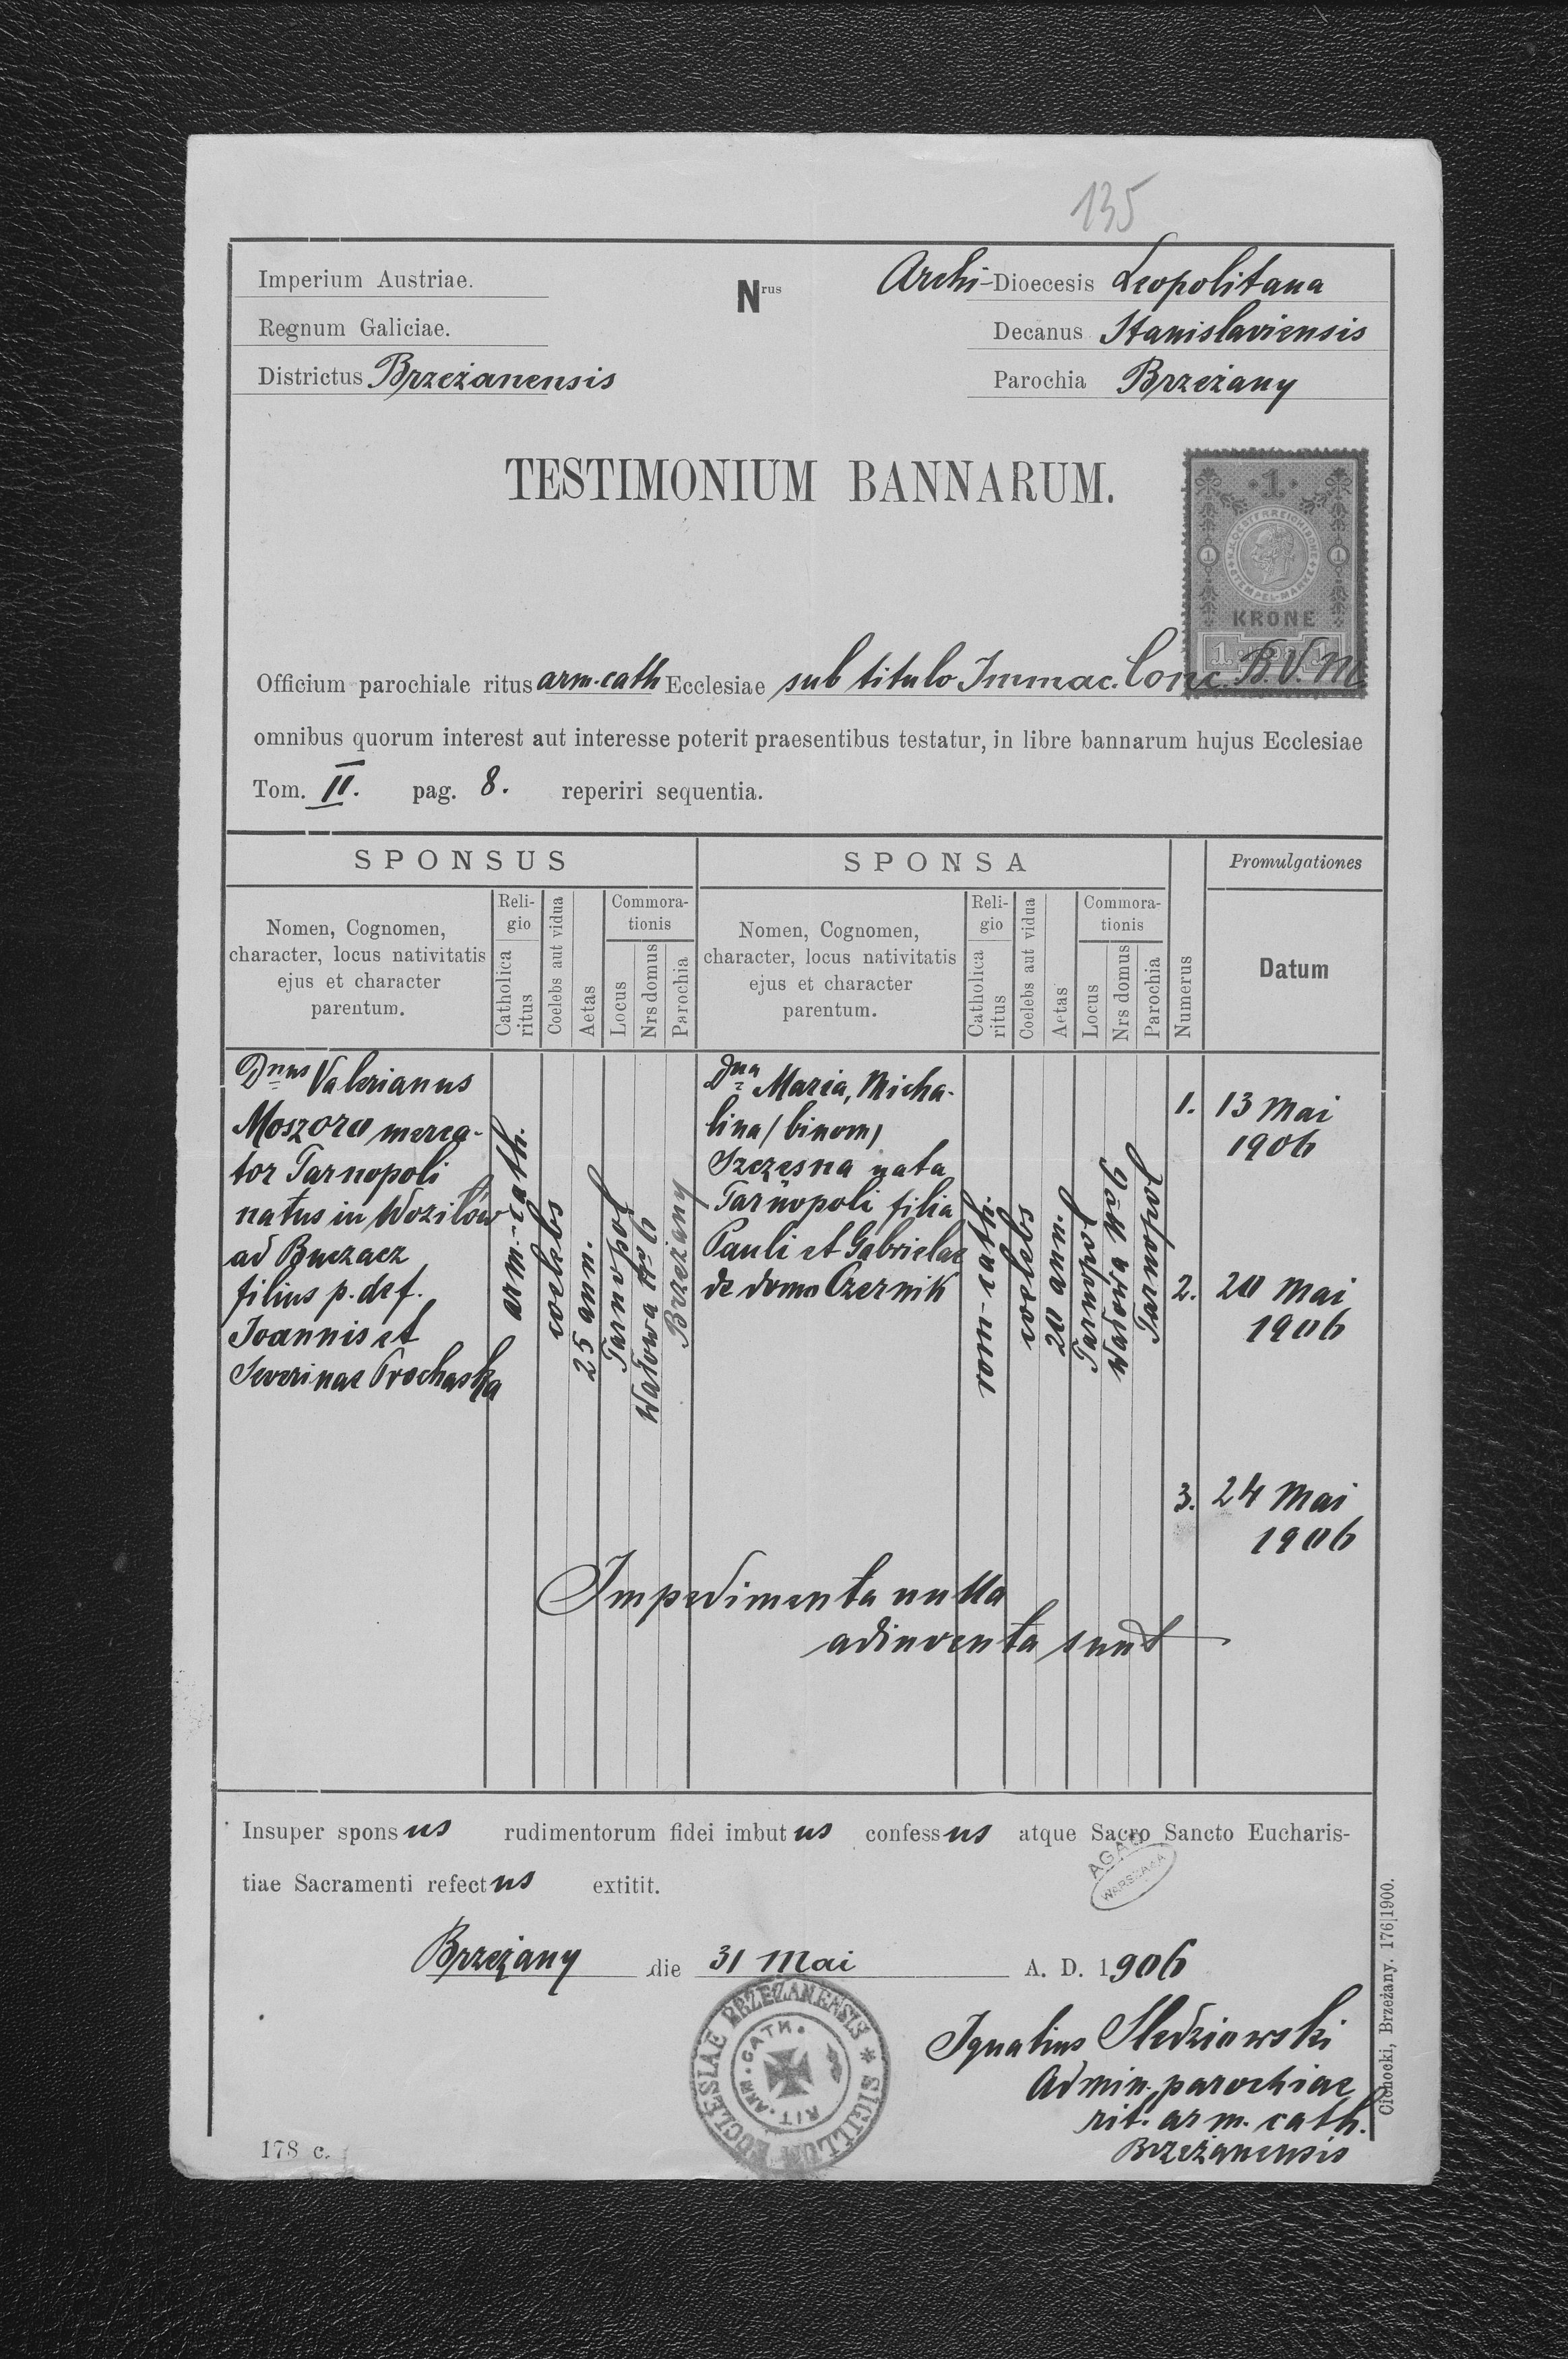 135
Imperium Austriae.
Nrus
Archi-Dioecesis Leopolitana
Regnum Galiciae.
Decanus Stanislaviensis
Districtus Brzeżanensis
Parochia Brzeżany
TESTIMONIUM BANNARUM.
1
1 1
STEMPEL-MARKE
KRONE
1. 1.
Officium parochiale ritus arm. cath Ecclesiae sub titulo Immac. Conc. B. V. M
omnibus quorum interest aut interesse poterit praesentibus testatur, in libre bannarum hujus Ecclesiae
Tom. II. pag. 8. reperiri sequentia.
SPONSUS
SPONSA
Numerus
Promulgationes
Nomen, Cognomen,
character, locus nativitatis
ejus et character
parentum.
Reli-
gio
Catholica
ritus
Coelebs aut vidua
Aetas
Commora-
tionis
Locus
Nrs domus
Parochia
Nomen, Cognomen,
character, locus nativitatis
ejus et character
parentum.
Reli-
gio
Catholica
ritus
Coelebs aut vidua
Aetas
Commora-
tionis
Locus
Nrs domus
Parochia
Datum
Dnus Valerianus
Moszoro merca-
tor Tarnopoli
natus in Woziłów
ad Buczacz
filius p. def.
Joannis et
Severinae Prochaska
arm.-cath.
coelebs
25 ann.
Tarnopol
Wałowa No 6
Brzeżany
Dna Maria, Micha-
lina / binom /
Szczęsna nata
Tarnopoli filia
Pauli et Gabrielae
de domo Czernik
rom-cath.
coelebs
20 ann.
Tarnopol
Wałowa No 9
Tarnopol
1. 13 Mai
1906
2. 20 Mai
1906
3. 24 Mai
1906
Impedimenta nulla
adinventa sunt
Insuper sponsus rudimentorum fidei imbutus confessus atque Sacro Sancto Eucharis-
tiae Sacramenti refectus extitit.
AGAD
WARSZAWA
Brzeżany die 31 Mai A. D. 1906
SIGILLUM ECCLESIAE BRZEZANENSIS *
RIT. ARM. CATH.
Ignatius Śledziowski
Admin. parochiae
rit. arm. cath.
Brzeżanensis
Cichocki, Brzeżany. 176|1900.
178 c.